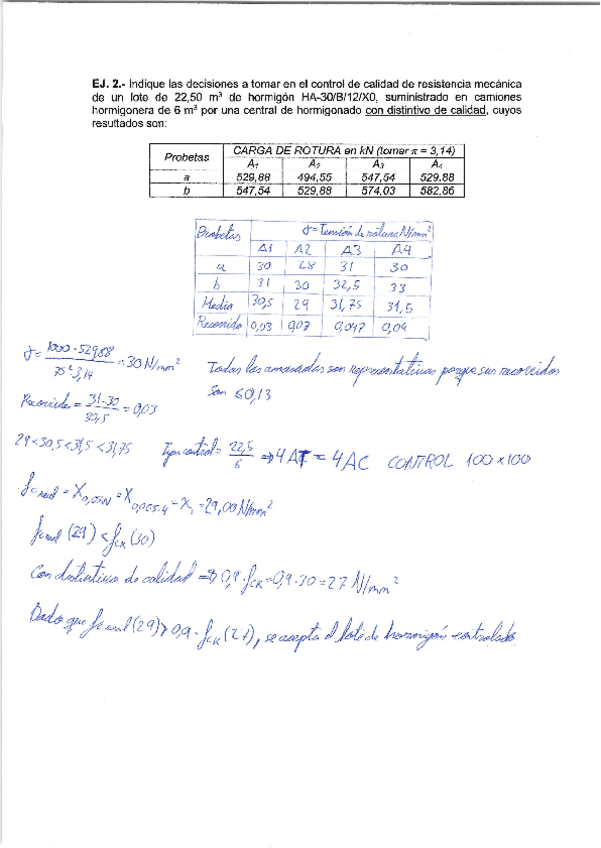 EJ. 2.- Indique las decisiones a tomar en el control de calidad de resistencia mecánica
de un lote de 22,50 m³ de hormigón HA-30/B/12/X0, suministrado en camiones
hormigonera de 6 m³ por una central de hormigonado con distintivo de calidad, cuyos
resultados son:
Probetas CARGA DE ROTURA en kN (tomar π = 3,14)
A₁ A₂ A₃ A₄
a 529,88 494,55 547,54 529,88
b 547,54 529,88 574,03 582,86
Probetas σ = Tensión de rotura N/mm²
A1 A2 A3 A4
a 30 28 31 30
b 31 30 32,5 33
Media 30,5 29 31,75 31,5
Recorrido 0,03 0,07 0,047 0,09
σ = 1000 · 529,88 / 75² · 3,14 = 30 N/mm²
Todas las amasadas son representativas porque sus recorridos
son ≤ 0,13
Recorrido = 31-30 / 30,5 = 0,03
29 < 30,5 < 31,5 < 31,75 Tipo control = 22,5 / 6 ⇒ 4 AT = 4 AC CONTROL 100 x 100
fc real = X0,05N = X0,05·4 = X₁ = 29,00 N/mm²
fc real (29) < fck (30)
Con distintivo de calidad ⇒ 0,9 · fck = 0,9 · 30 = 27 N/mm²
Dado que fc real (29) > 0,9 · fck (27), se acepta el lote de hormigón controlado.